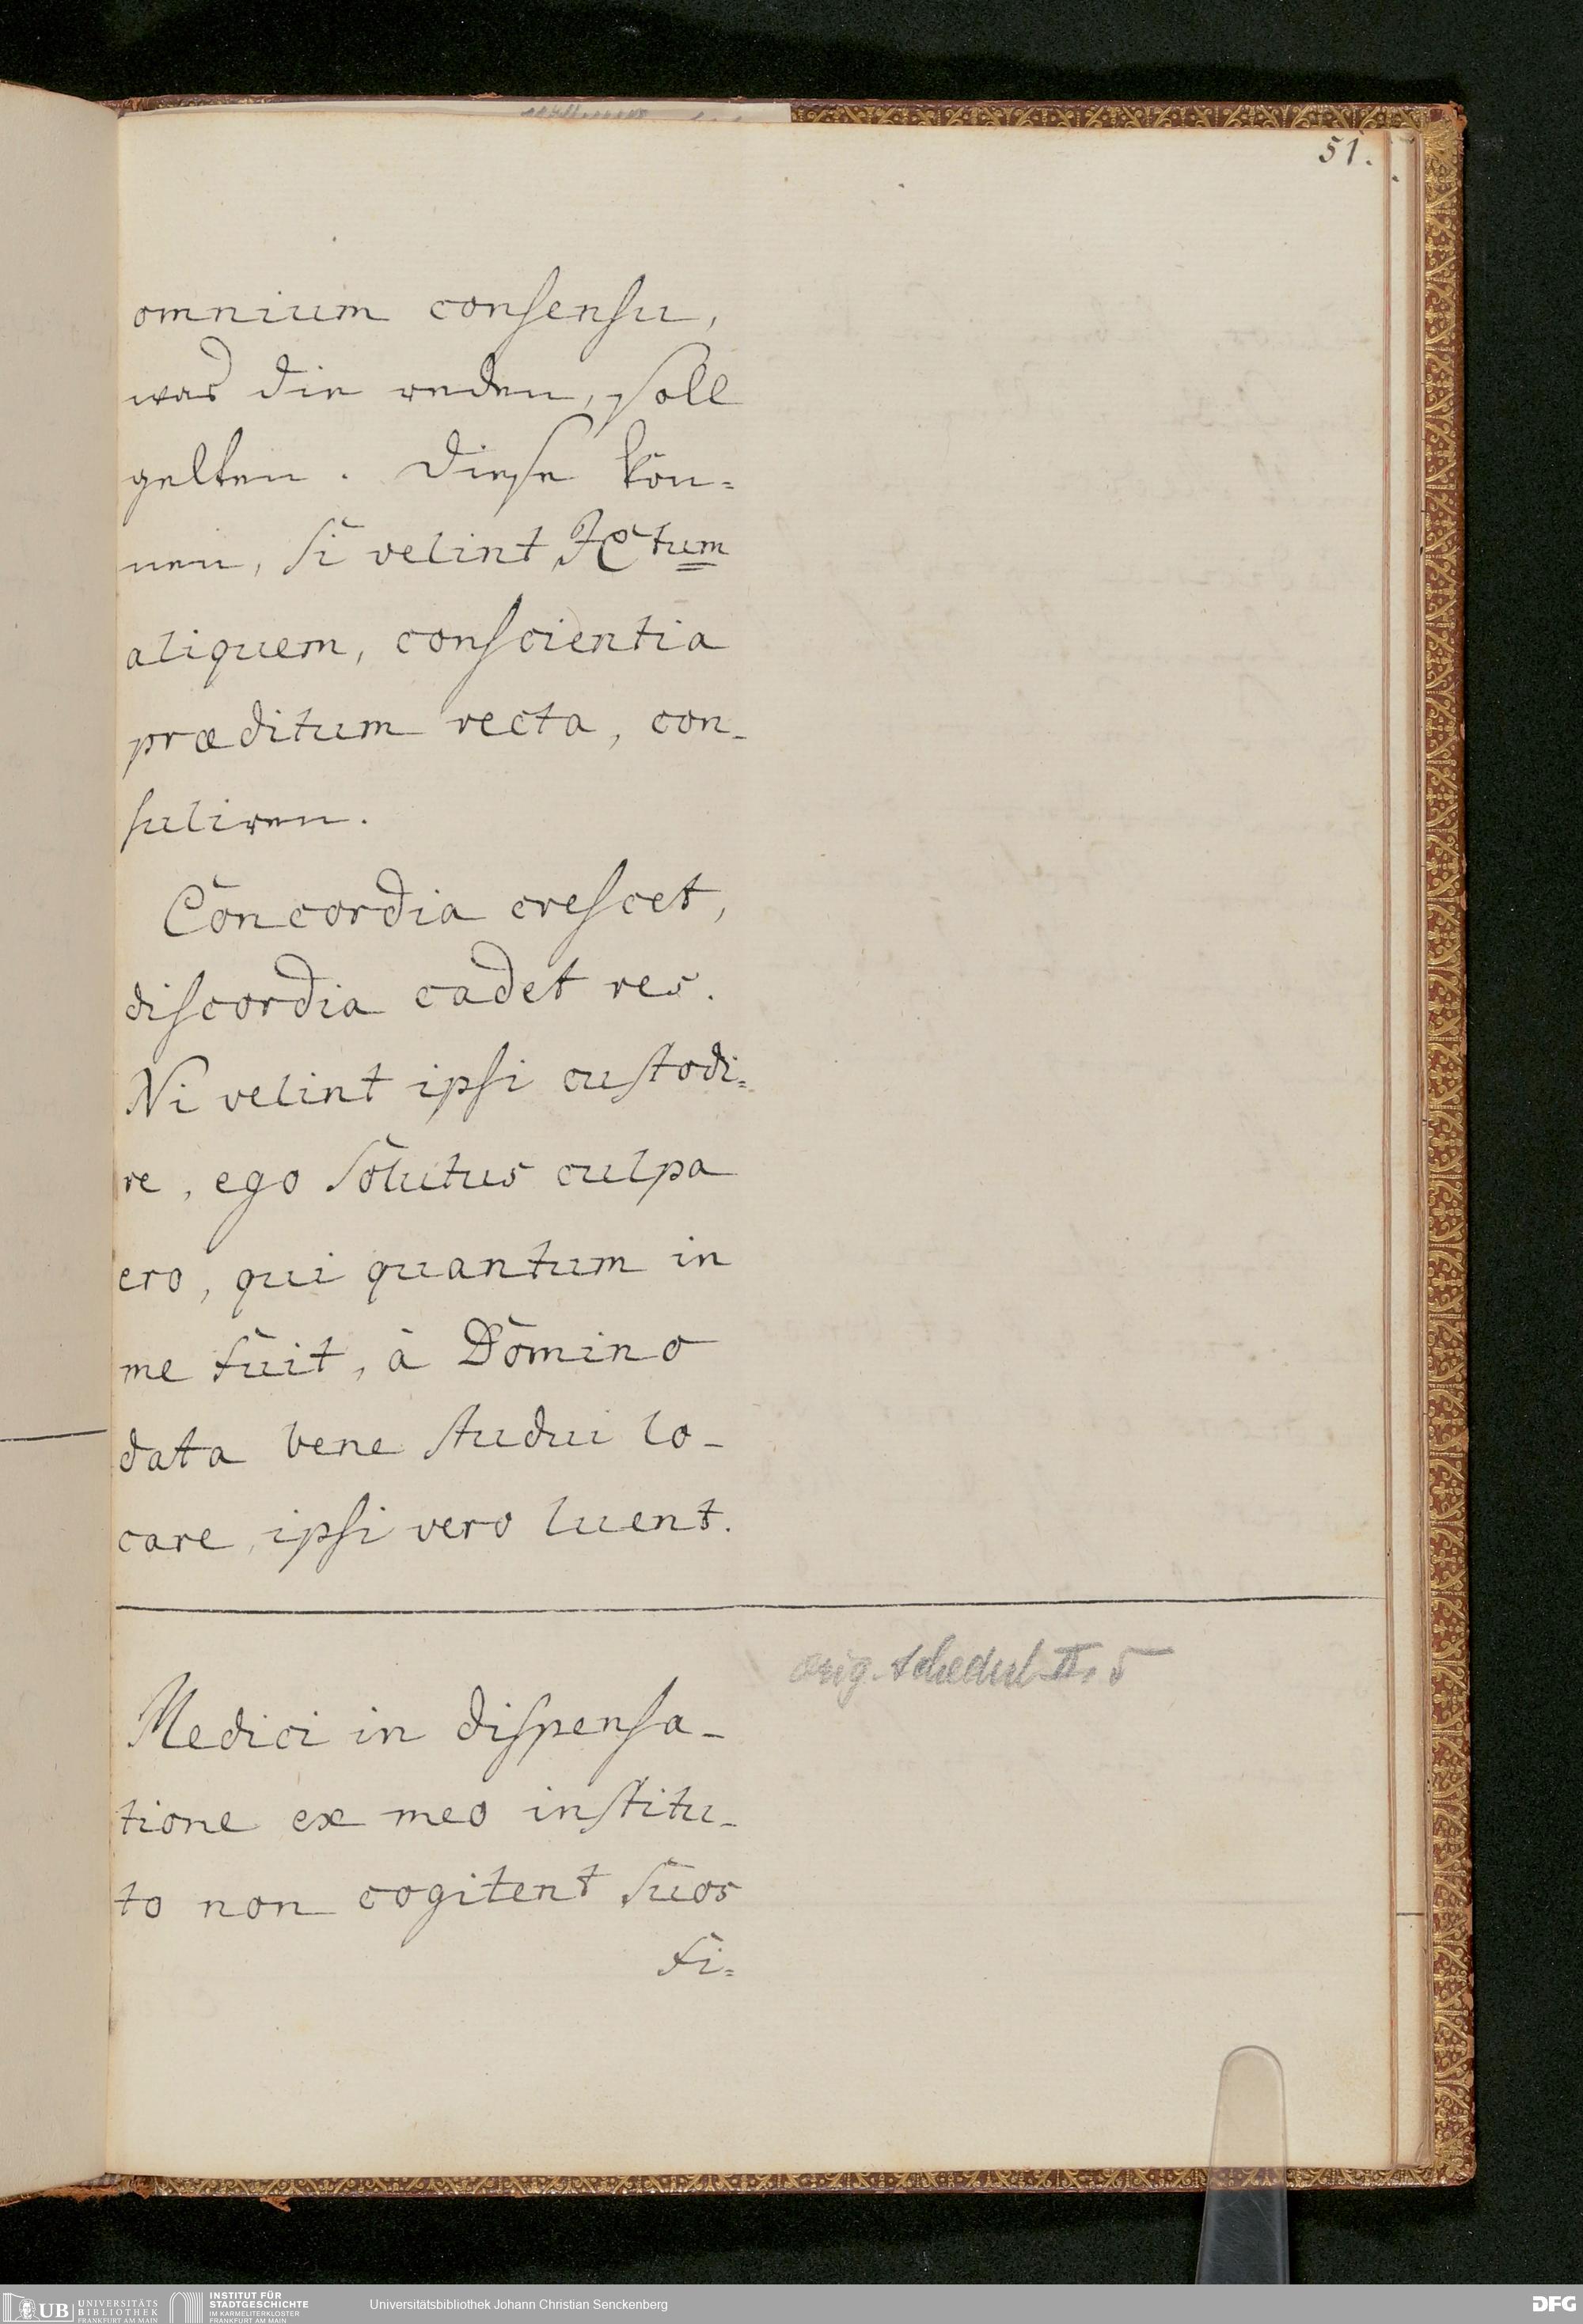 51.
omnium consensu,
was die reden, soll
gelten. Diese kön=
nen, si velint JCtum
aliquem, conscientia
præditum recta, con-
suliren.
Concordia crescet,
discordia cadet res.
Ni velint ipsi custodi=
re, ego solutus culpa
ero, qui quantum in
me fuit, à Domino
data bene studui lo-
care, ipsi vero luent.
orig. Schedul II, 5
Medici in dispensa-
tione ex meo institu-
to non cogitent suos
fi=
UB UNIVERSITÄTS
BIBLIOTHEK
FRANKFURT AM MAIN
INSTITUT FÜR
STADTGESCHICHTE
IM KARMELITERKLOSTER
FRANKFURT AM MAIN
Universitätsbibliothek Johann Christian Senckenberg
DFG